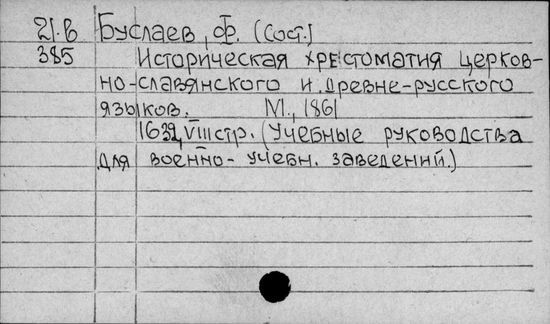 21.в Буслаев, Ф. (Сост.)
385 Историческая хрестоматия церков-
но-славянского и древне-русского
языков. М., 1861
1632, VIII стр. (Учебные руководства
для военно-учебн. заведений.)